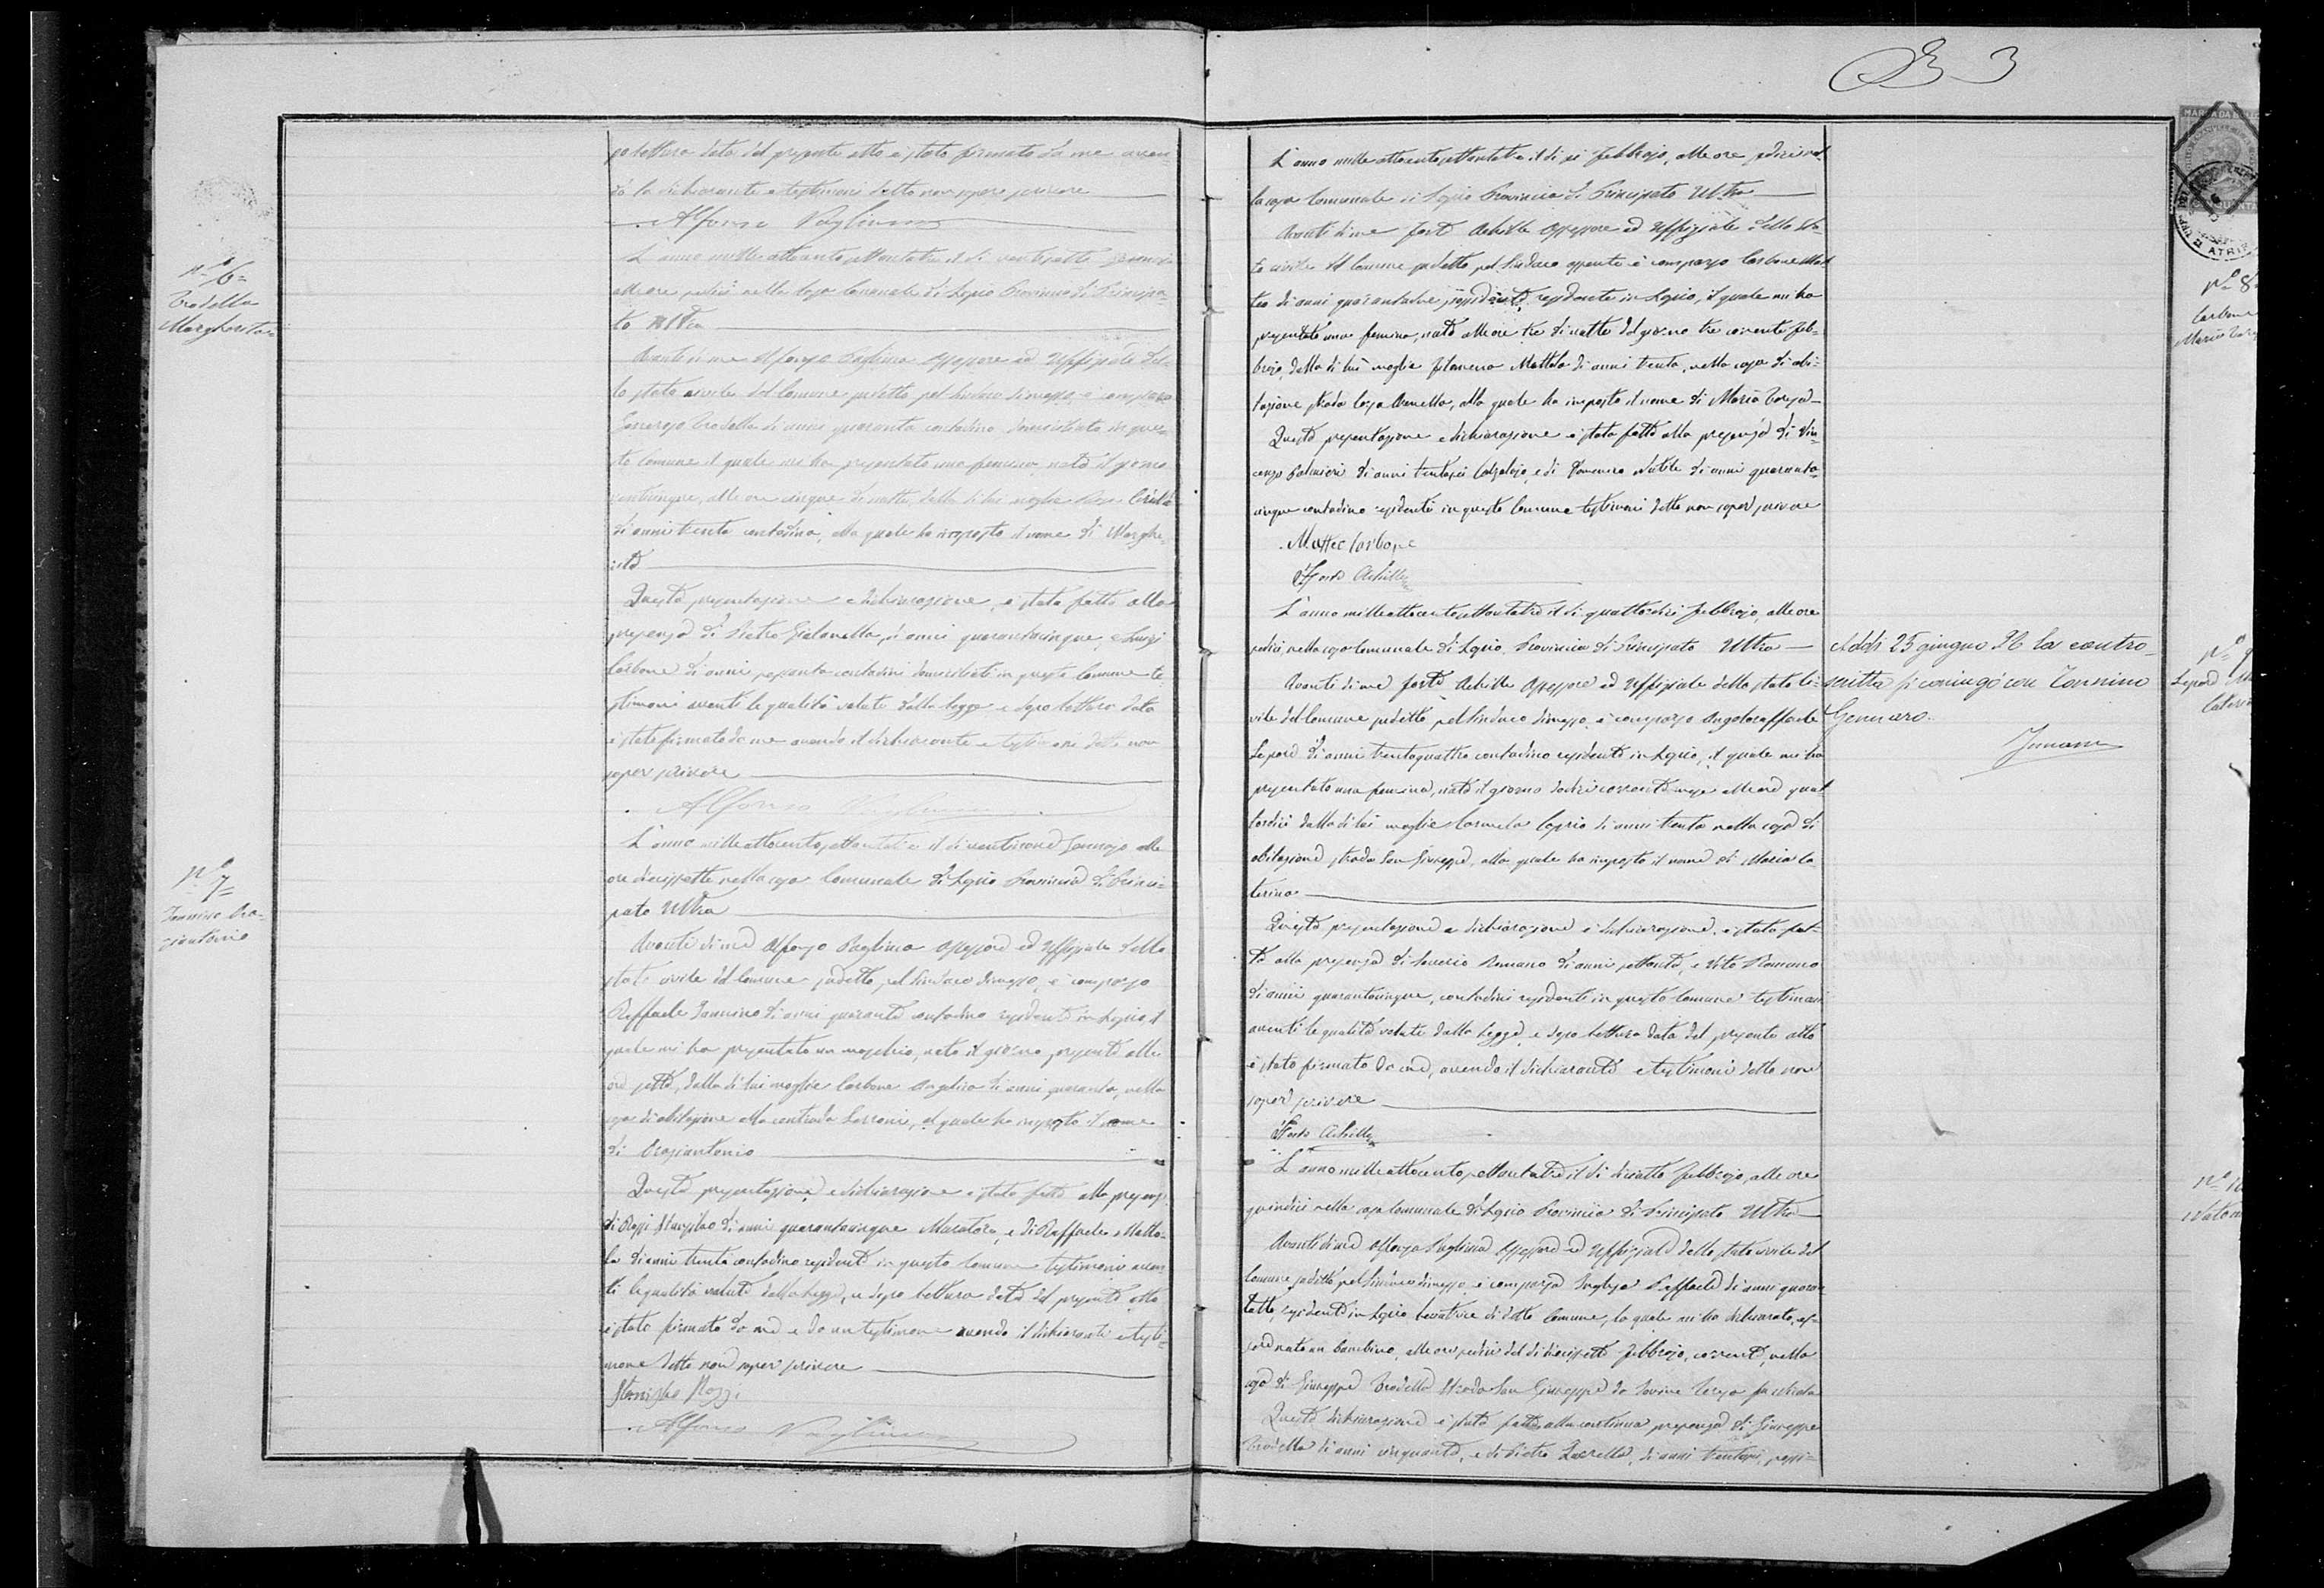 3
po lettura data del presente atto è stato firmato da me aven-
do la dichiarante e testimoni detto non saper scrivere
Alfonso Pagliuca
Nº 6=
Trodella
Margherita
L'anno mille ottocento settantatre il dì ventisette Gennajo
alle ore sedici nella casa Comunale di Lapio Provincia di Principa-
to Ultra
Avanti di me Alfonso Pagliuca Assessore ed Uffiziale del-
lo stato civile del Comune sudetto pel Sindaco dimesso, è comparso
Trodella di anni quaranta contadino domiciliato in que-
sto Comune il quale mi ha presentato una femina nata il giorno
venticinque, alle ore cinque di notte, dalla di lui moglie Rosa
di anni trenta contadina, alla quale ha imposto il nome di Marghe-
rita
Questa presentazione e dichiarazione, è stata fatta alla
presenza di Pietro di anni quarantacinque, e Luigi
Carbone di anni sessanta contadini domiciliati in questo Comune te-
stimoni aventi le qualità volute dalla legge e dopo lettura data
è stato firmato da me avendo il dichiarante e testimoni detto non
saper scrivere
Alfonso Pagliuca
Nº 7=
Iannino Ora-
ziantonio
L'anno mille ottocento settantatre il dì ventinove Gennajo alle
ore diecissette nella casa Comunale di Lapio Provincia di Princi-
pato Ultra
Avanti di me Alfonso Pagliuca Assessore ed Uffiziale dello
stato civile del Comune sudetto, pel Sindaco dimesso, è comparso
Raffaele Iannino di anni quaranta contadino residente in Lapio, il
quale mi ha presentato un maschio, nato il giorno presente alle
ore sette, dalla di lui moglie Carbone Angelica di anni quaranta, nella
casa di abitazione alla contrada al quale ha imposto il nome
di Oraziantonio
Questa presentazione e dichiarazione è stata fatta alla presenza
di Rozzi Stanislao di anni quarantacinque Muratore, e di Raffaele Matto-
la di anni trenta contadino residenti in questo Comune testimoni aven-
ti le qualità volute dalla legge, e dopo lettura data del presente atto
è stato firmato da me e da un testimone avendo il dichiarante e testi-
mone detto non saper scrivere
Stanislao Rozzi
Alfonso Pagliuca
L'anno mille ottocento settantatre il dì sei Febbrajo, alle ore sedici nel-
la casa Comunale di Lapio Provincia di Principato Ultra
Avanti di me Forte Achille Assessore ed Uffiziale dello sta-
to civile del Comune sudetto pel Sindaco assente è comparso Carbone Mat-
teo di anni possidente residente in Lapio, il quale mi ha
presentato una femina, nata alle ore tre di notte del giorno tre corrente Feb-
brajo, dalla di lui moglie Filomena Mattola di anni trenta, nella casa di abi-
tazione strada alla quale ha imposto il nome di Maria Teresa
Questa presentazione e dichiarazione è stata fatta alla presenza di Vin-
cenzo Palmieri di anni trentasei Calzolajo, e di di anni quaranta-
cinque contadino residenti in questo Comune testimoni detto non saper scrivere
Matteo Carbone
Forte Achille
Nº 8
Carbone
Maria
L'anno mille ottocento settantatre il dì quattordici Febbrajo, alle ore
sedici, nella casa Comunale di Lapio Provincia di Principato Ultra
Avanti di me Forte Achille Assessore ed Uffiziale dello stato ci-
vile del Comune sudetto pel Sindaco dimesso è comparso Angeloraffaele
Lepore di anni trentaquattro contadino residente in Lapio, il quale mi ha
presentato una femina, nata il giorno dodici corrente mese alle ore quat-
tordici dalla di lui moglie Carmela di anni trenta nella casa di
abitazione strada San Giuseppe, alla quale ha imposto il nome di Maria Ca-
terina
Questa presentazione e dichiarazione e dichiarazione è stata fat-
ta alla presenza di Saverio Romano di anni settanta, e Vito Romano
di anni quarantacinque, contadini residenti in questo Comune testimoni
aventi le qualità volute dalla legge, e dopo lettura data del presente atto
è stato firmato da me, avendo il dichiarante e testimoni detto non
saper scrivere
Forte Achille
Addì 25 giugno 96 la contro-
scritta si coniugò con Iannino
Gennaro
Nº 9
Lepore
L'anno mille ottocento settantatre il dì diciotto Febbrajo, alle ore
quindici nella casa Comunale di Lapio Provincia di Principato Ultra
Avanti di me Alfonso Pagliuca Assessore ed Uffiziale dello stato civile del
Comune sudetto pel Sindaco dimesso è comparsa Raffaela di anni quaran-
totto, residente in Lapio levatrice di detto Comune, la quale mi ha dichiarato, es-
sere nato un bambino, alle ore sedici del dì diecissette Febbrajo, corrente, nella
casa di Giuseppe Trodella Strada San Giuseppe da
Questa dichiarazione è stata fatta alla continua presenza di Giuseppe
Trodella di anni cinquanta, e di Pietro di anni trentasei, possi-